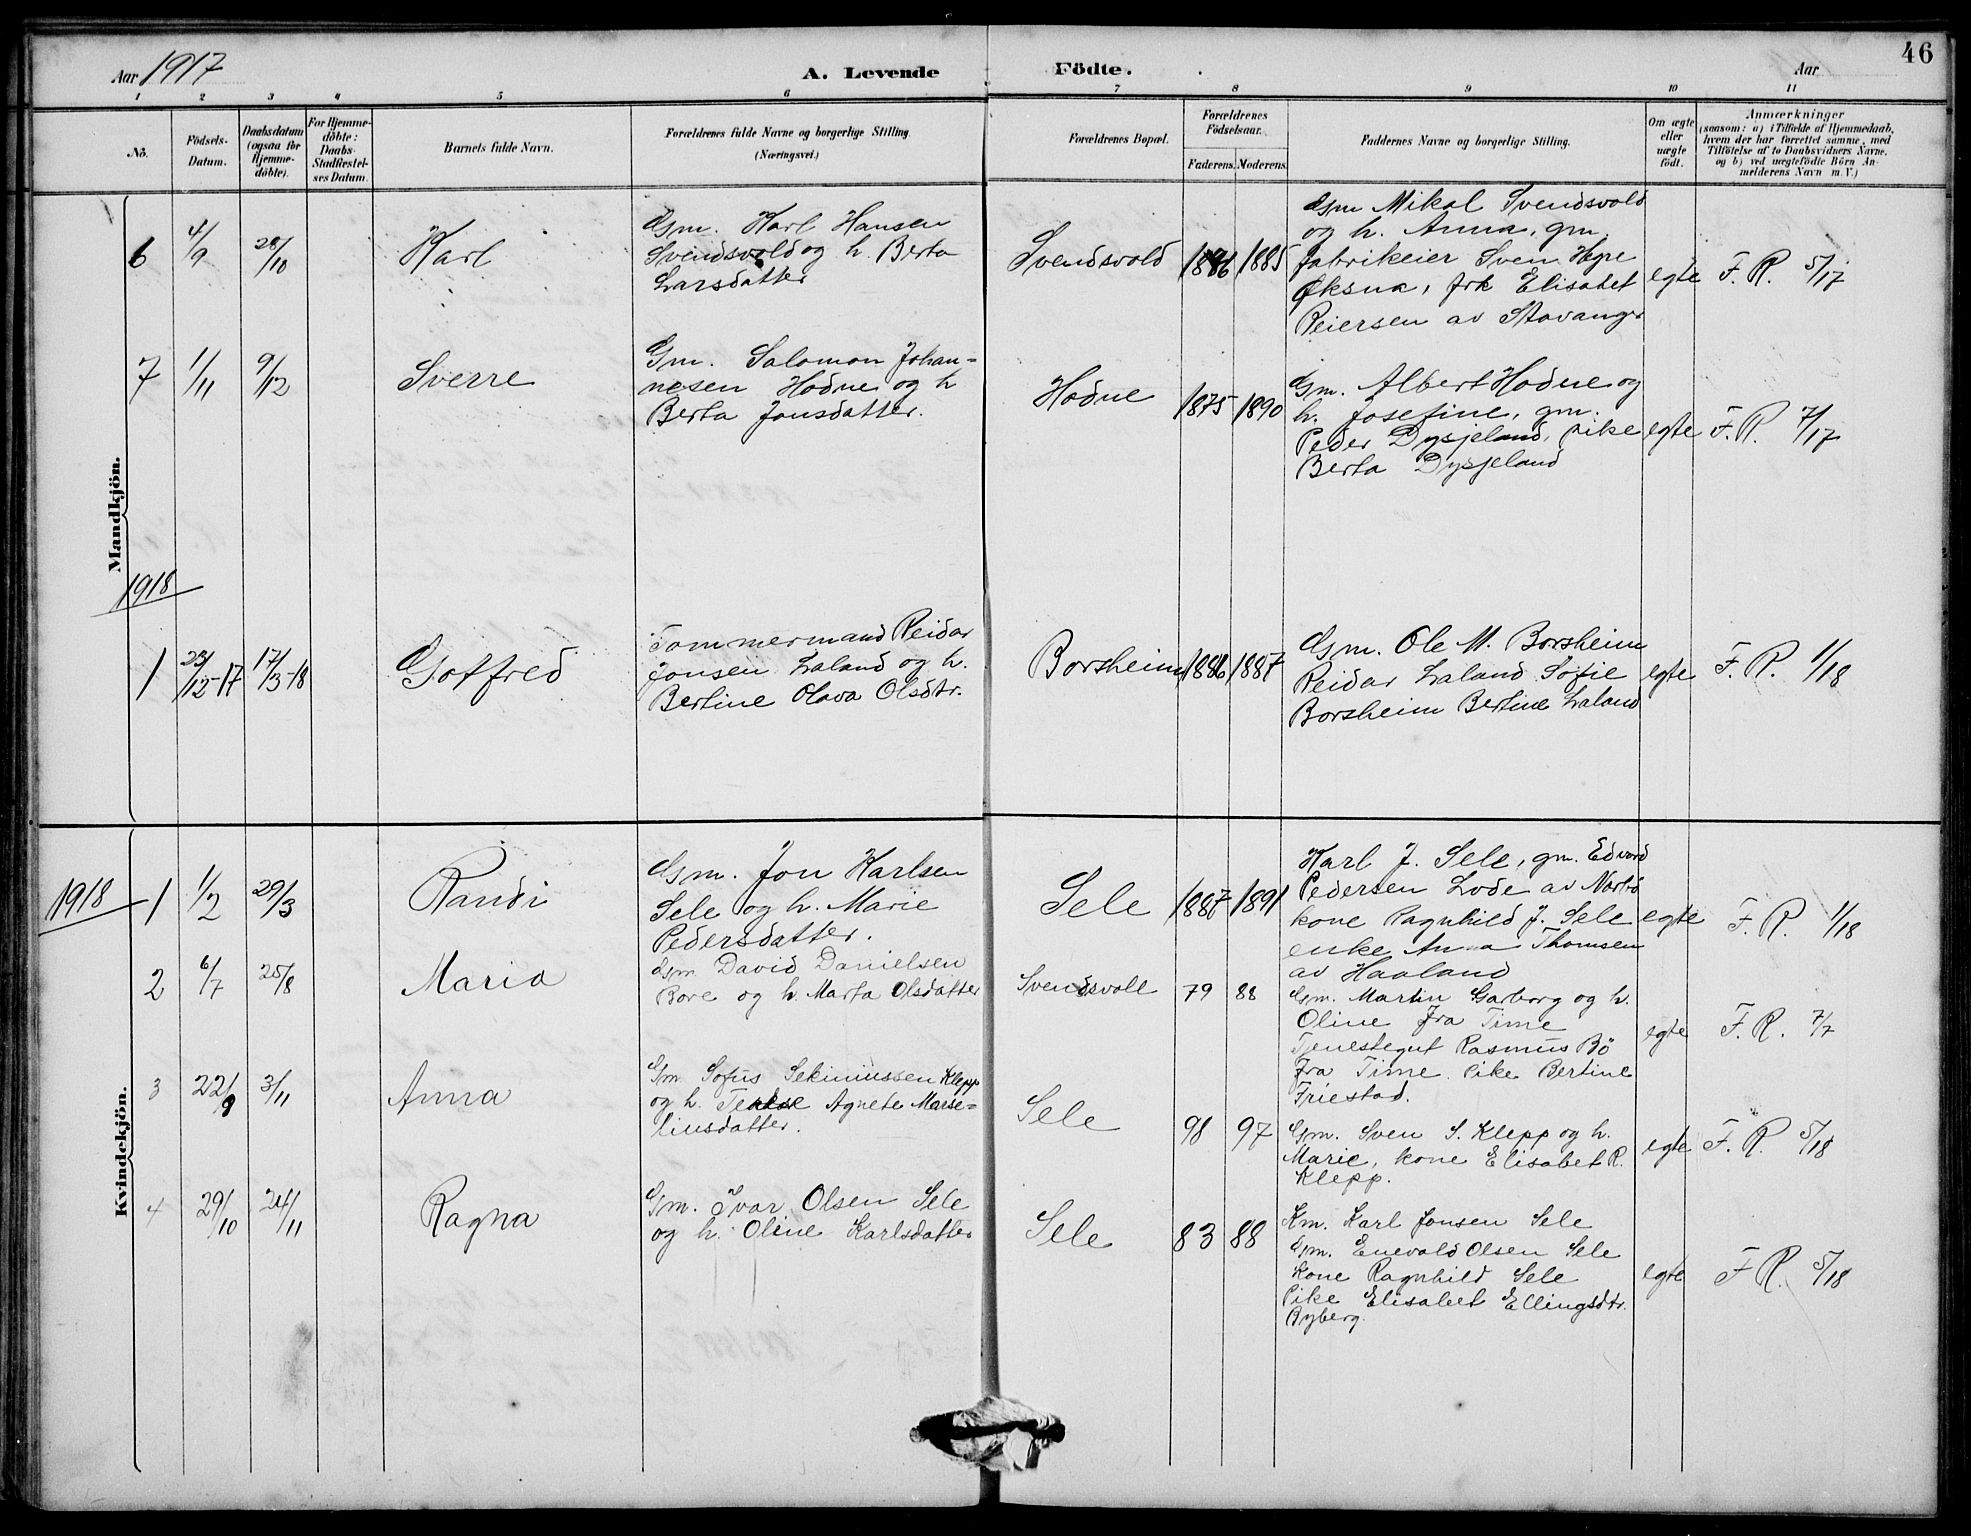 46
Aar 1917
A. Levende
Födte.
Aar
1 2 3 4 5 6 7 8 9 10 11
No.
Födsels-
Datum.
Daabsdatum
(ogsaa for
Hjemme-
döbte).
For Hjemme-
döbte:
Daabs-
Stadfæstel-
ses Datum.
Barnets fulde Navn.
Forældrenes fulde Navne og borgerlige Stilling
(Næringsvei.)
Forældrenes Bopæl.
Forældrenes
Födselsaar.
Faderens. Moderens.
Faddernes Navne og borgerlige Stilling.
Om ægte
eller
uægte
födt.
Anmærkninger
(saasom: a) i Tilfælde af Hjemmedaab,
hvem der har forrettet samme, med
Tilföielse af to Daabsvidners Navne,
og b) ved uægtefödte Börn An-
melderens Navn m. V.)
Mandkjön.
6 4/9 28/10 Karl
Gsm. Karl Hansen
Svendsvold og h. Berta
Larsdatter
Svendsvold 1886 1885
Gsm Mikal Svendsvold
og h. Anna, gm.
fabrikeier Sven Hegre
Øksna, frk Elisabet
Reiersen av Stavanger
egte F. R. 5/17
7 1/11 9/12 Sverre
Gm. Salomon Johan-
nesen Hodne og h
Berta Jonsdatter.
Hodne 1875 1890
Gm. Albert Hodne og
h. Josefine, gm.
Peder Dysjeland, pike
Berta Dysjeland
egte F. R. 7/17
1918
1 23/12-17 17/3-18 Gotfred
Tømmermand Reidar
Jonsen Laland og h.
Bertine Olava Olsdtr.
Borsheim 1886 1887
Gsm. Ole M. Borsheim
Reidar Laland Sofie
Borsheim Bertine Laland
egte F. R. 1/18
Kvindekjön.
1918
1 1/2 29/3 Randi
Gsm. Jon Karlsen
Sele og h. Marie
Pedersdatter.
Sele 1887 1891
Karl J. Sele, gm. Edvard
Pedersen Lode av Nærbø
kone Ragnhild J. Sele
enke Anna Thomsen
av Haaland
egte F. R. 1/18
2 6/7 25/8 Maria
Gsm David Danielsen
Bore og h. Marta Olsdatter
Svendsvoll 79 88
Gm. Martin Garborg og h.
Oline fra Time
Tjenestegut Rasmus Bö
fra Time. Pike Bertine
Friestad.
egte F. R. 7/7
3 22/9 3/11 Anna
Gm Sofus Sekiniussen Klepp
og h. Agnete Marse-
liusdatter.
Sele 98 97
Gm. Sven S. Klepp og h.
Marie, kone Elisabet R.
Klepp.
egte F. R. 5/18
4 29/10 24/11 Ragna
Gm. Ivar Olsen Sele
og h. Oline Karlsdatter
Sele 83 88
Km. Karl Jonsen Sele
Gm. Enevald Olsen Sele
Kone Ragnhild Sele
Pike Elisabet Ellingsdtr.
Byberg.
egte F R. 5/18